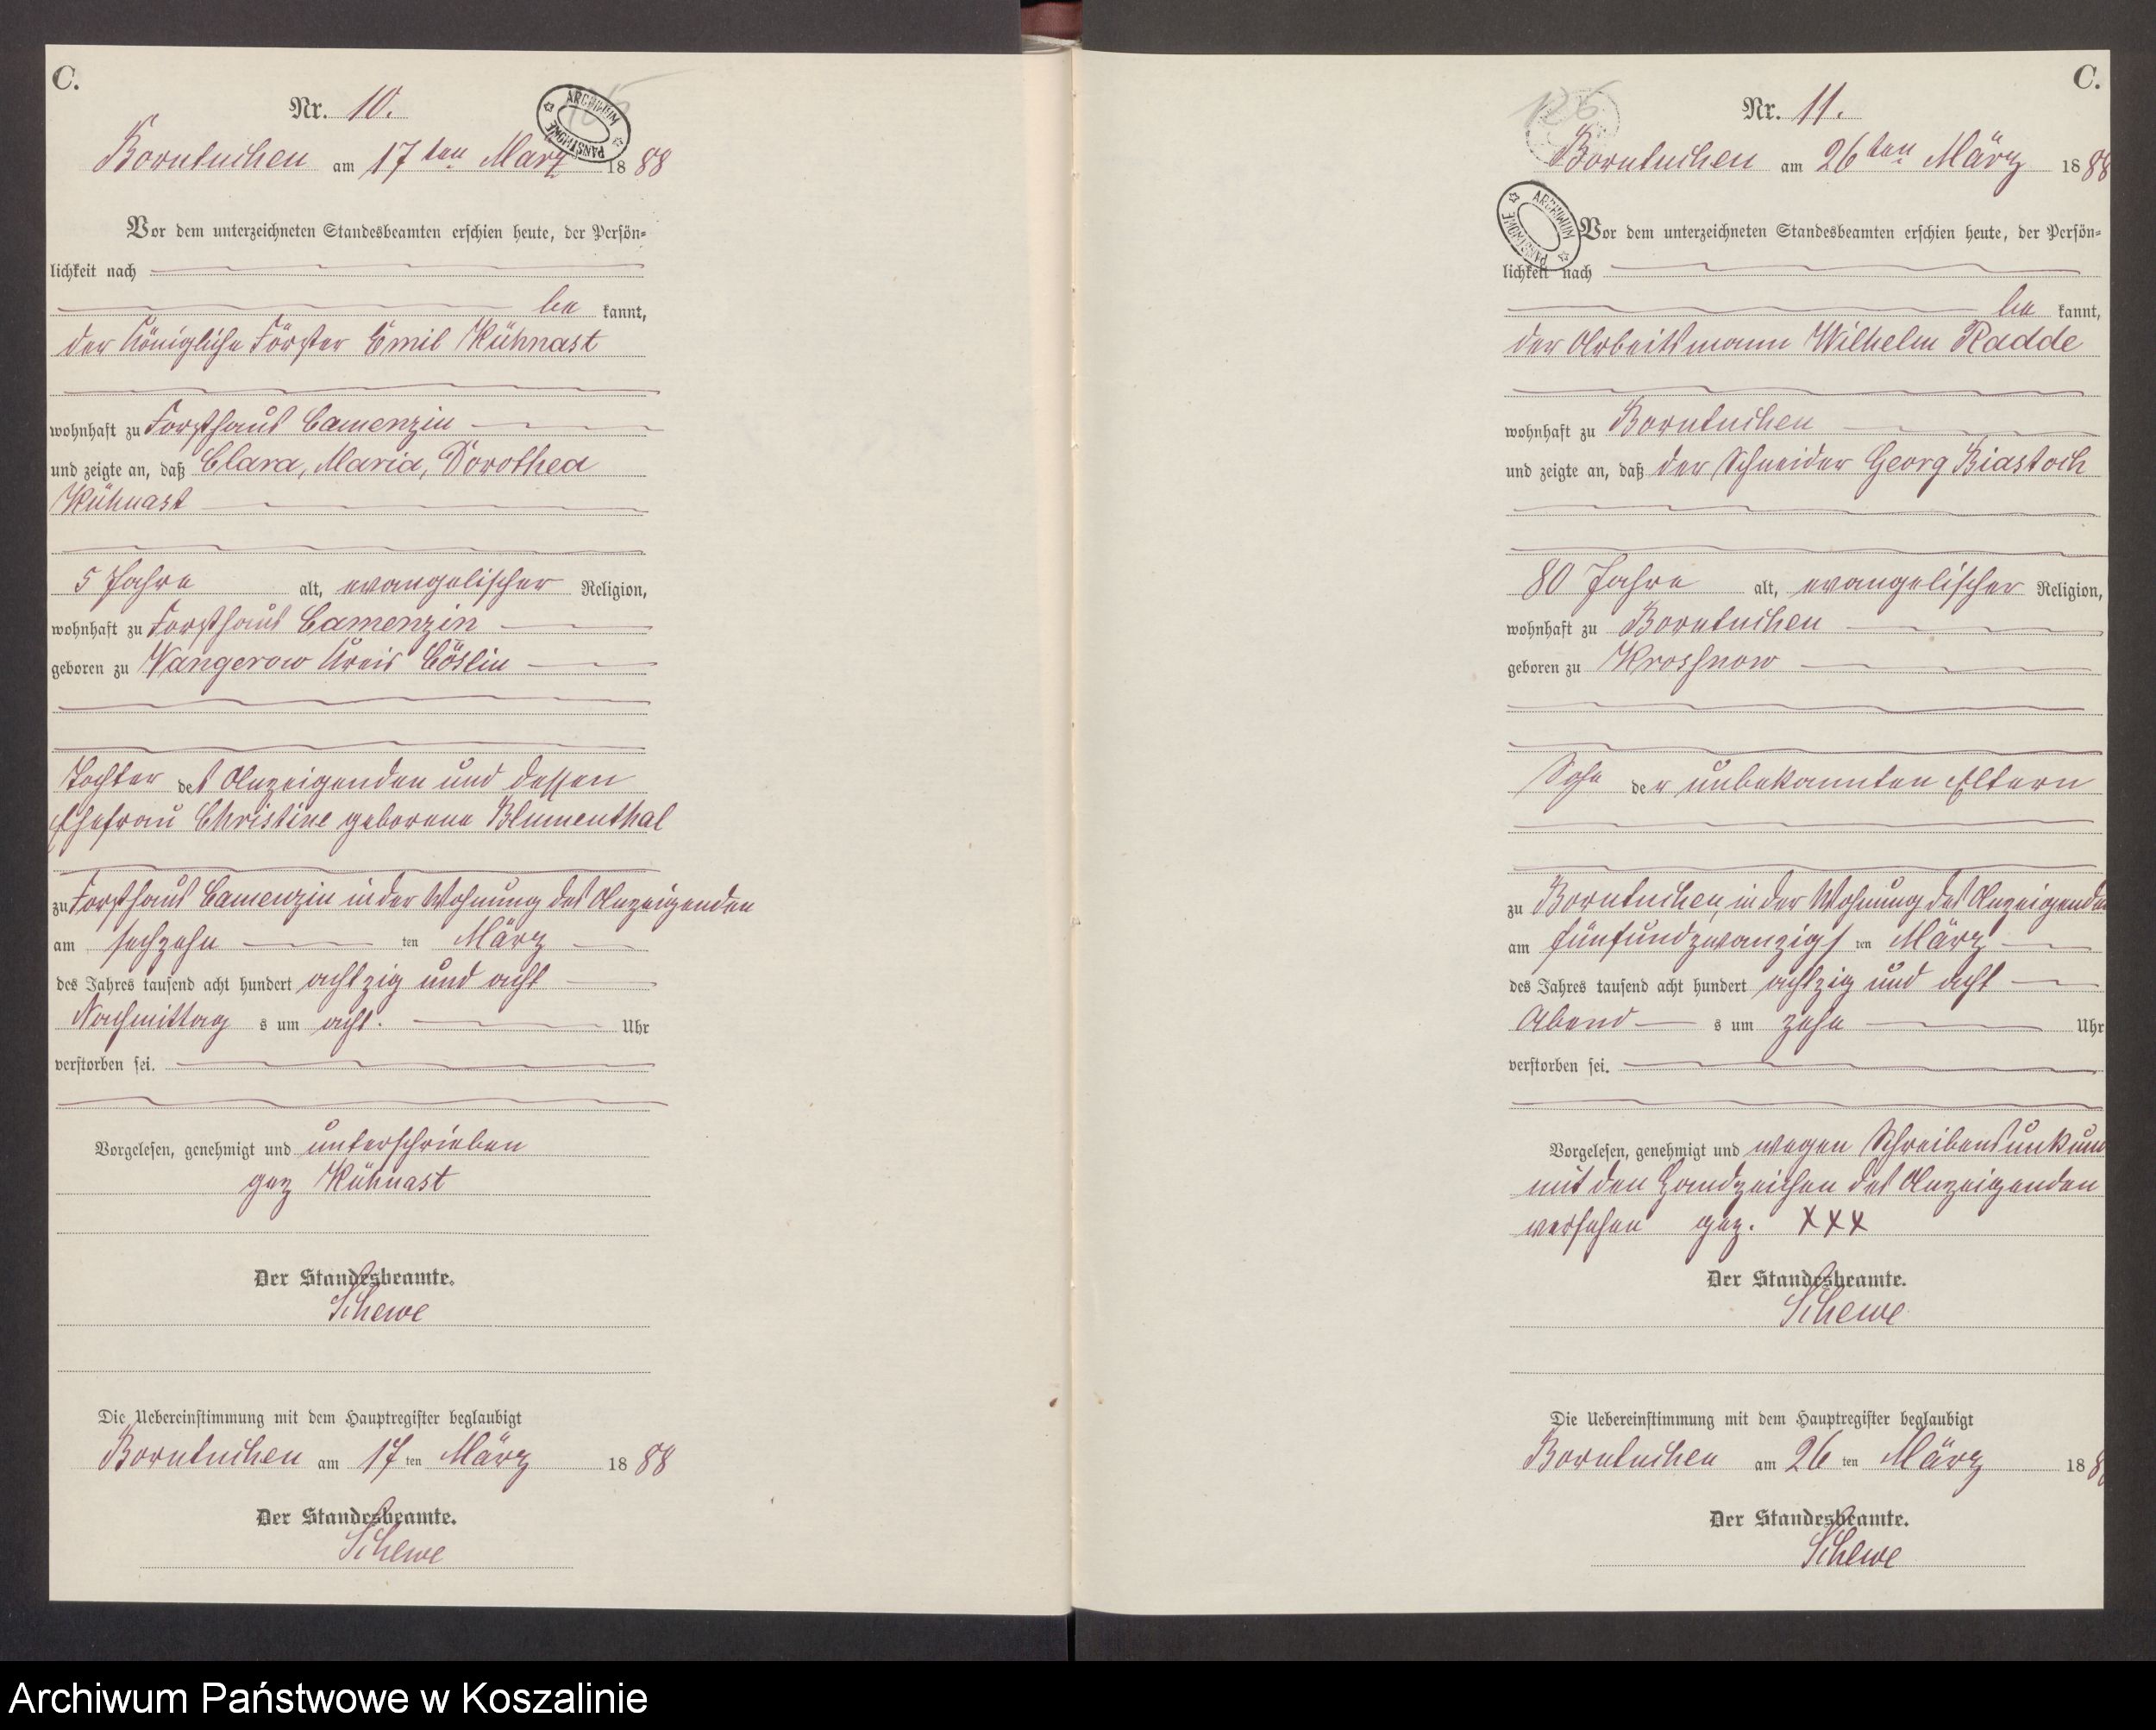 C.
Nr. 10.
ARCHIWUM PAŃSTWOWE
Borntuchen am 17ten März 1888
Vor dem unterzeichneten Standesbeamten erschien heute, der Persön-
lichkeit nach
be kannt,
der Königliche Förster Emil Kühnast
wohnhaft zu Forsthaus Camenzin
und zeigte an, daß Clara, Maria, Dorothea
Kühnast
5 Jahre alt, evangelischer Religion,
wohnhaft zu Forsthaus Camenzin
geboren zu Vangerow Kreis Cöslin
Tochter des Anzeigenden und dessen
Ehefrau Christine geborene Blumenthal
zu Forsthaus Camenzin in der Wohnung des Anzeigenden
am sechzehn ten März
des Jahres tausend acht hundert achtzig und acht
Nachmittag s um acht Uhr
verstorben sei.
Vorgelesen, genehmigt und unterschrieben
gez Kühnast
Der Standesbeamte.
Schewe
Die Uebereinstimmung mit dem Hauptregister beglaubigt
Borntuchen am 17 ten März 1888
Der Standesbeamte.
Schewe
C.
Nr. 11.
Borntuchen am 26ten März 1888
ARCHIWUM PAŃSTWOWE
Vor dem unterzeichneten Standesbeamten erschien heute, der Persön-
lichkeit nach
be kannt,
der Arbeitsmann Wilhelm Radde
wohnhaft zu Borntuchen
und zeigte an, daß der Schneider Georg Biastoch
80 Jahre alt, evangelischer Religion,
wohnhaft zu Borntuchen
geboren zu Krossnow
Sohn der unbekannten Eltern
zu Borntuchen, in der Wohnung des Anzeigenden
am fünfundzwanzigs ten März
des Jahres tausend acht hundert achtzig und acht
Abend s um zehn Uhr
verstorben sei.
Vorgelesen, genehmigt und wegen Schreibensunkun
mit den Handzeichen des Anzeigenden
versehen gez. XXX
Der Standesbeamte.
Schewe
Die Uebereinstimmung mit dem Hauptregister beglaubigt
Borntuchen am 26 ten März 188
Der Standesbeamte.
Schewe
Archiwum Państwowe w Koszalinie